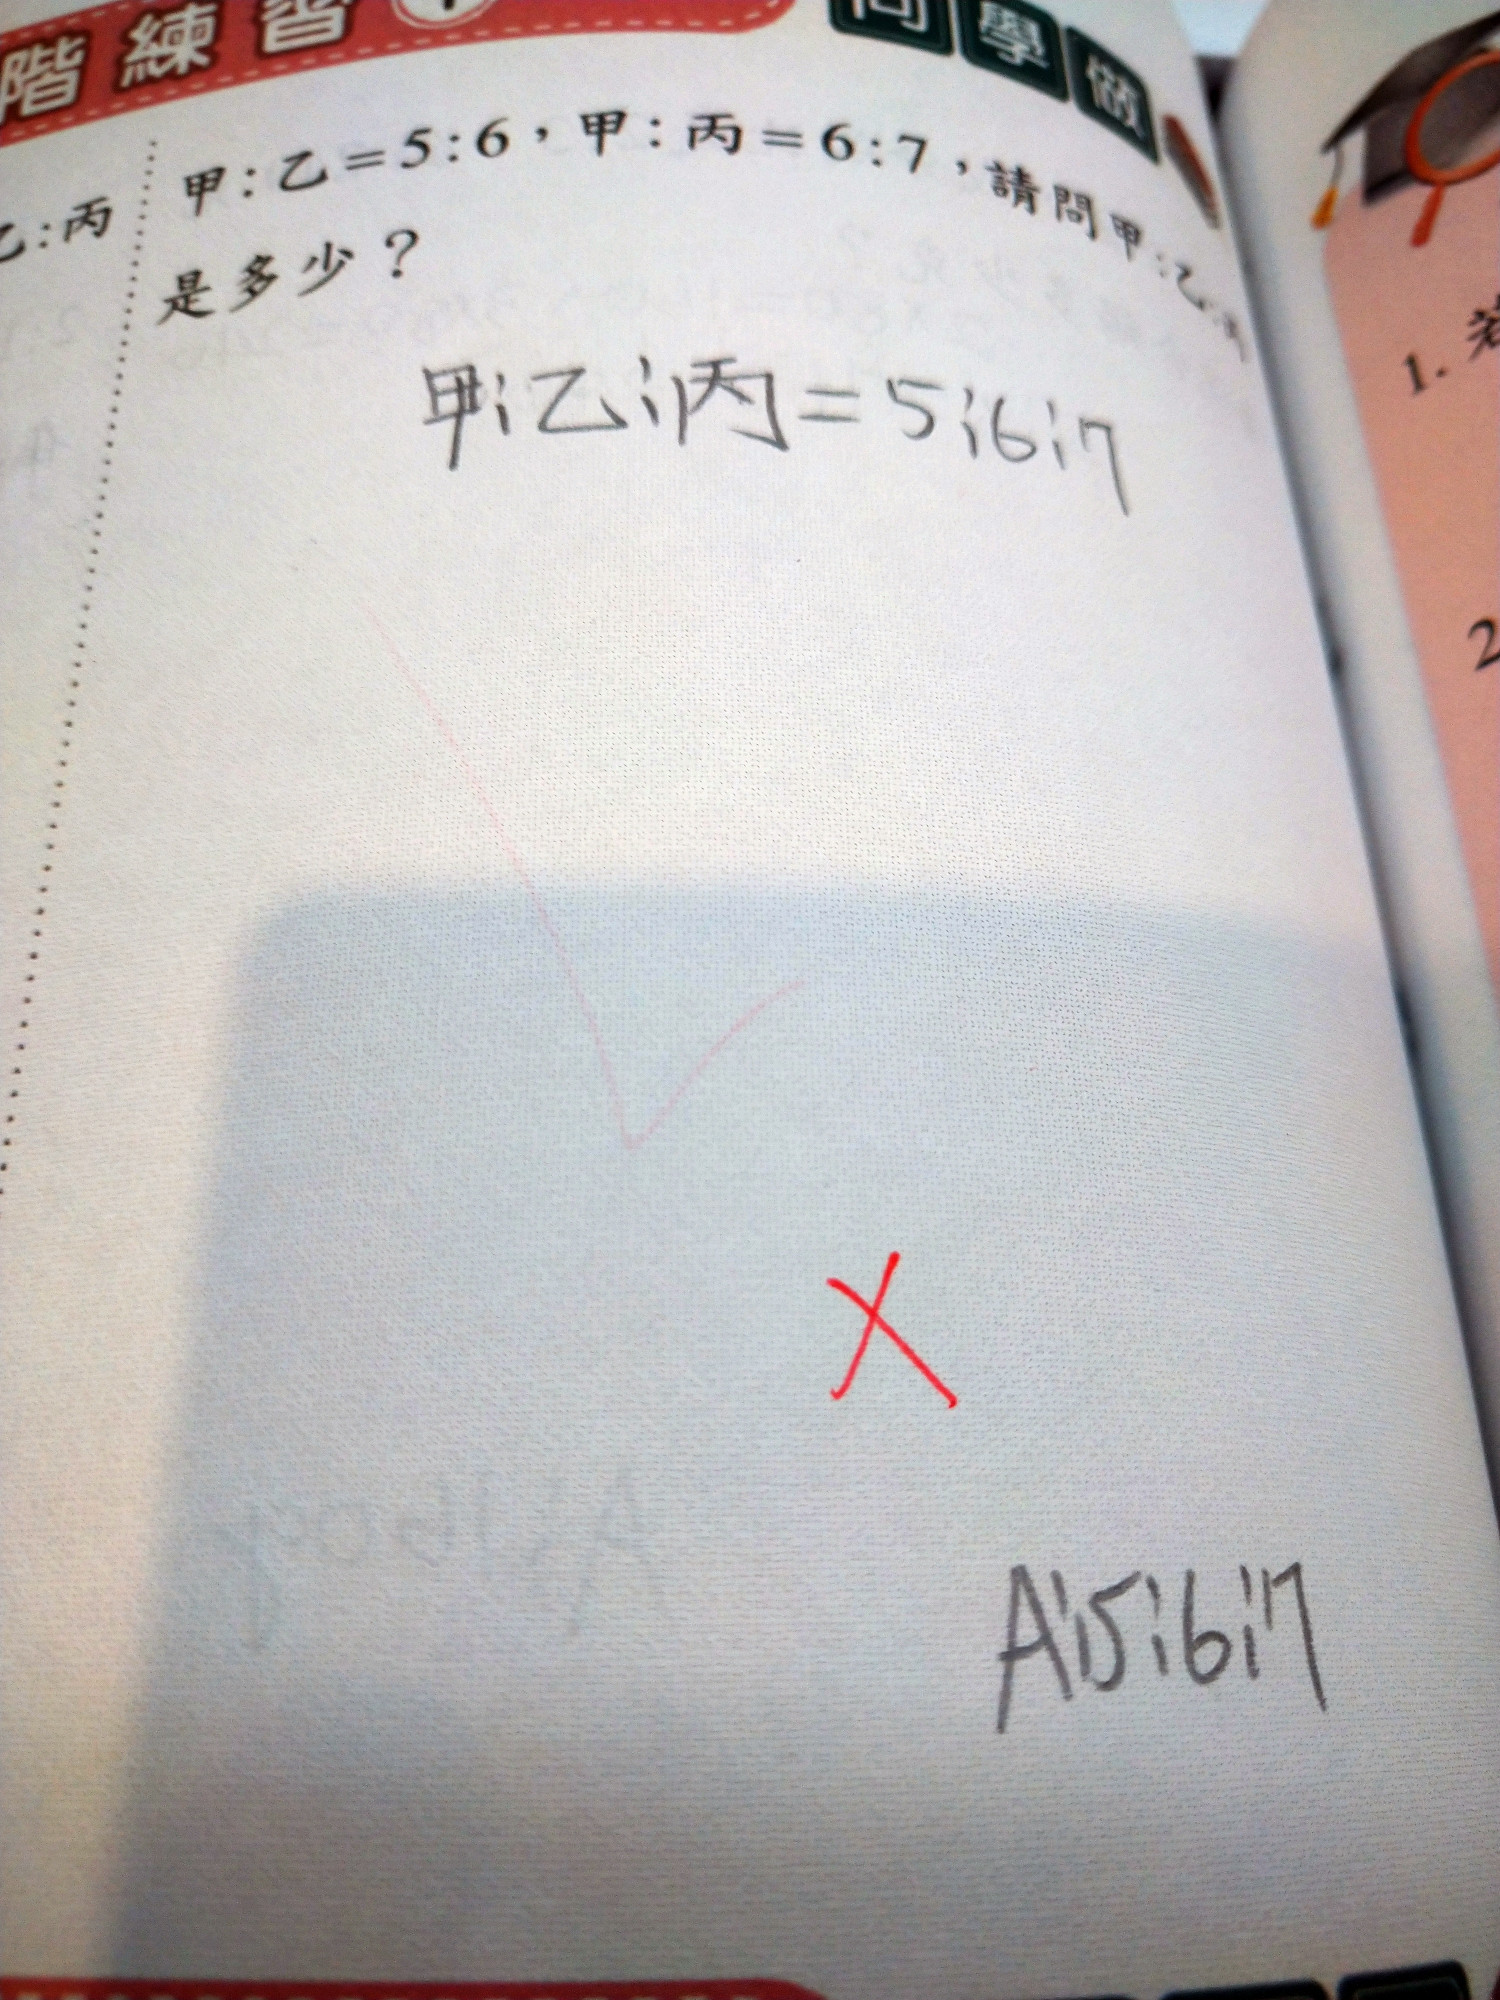 階練習
同學做
甲:乙=5:6,甲:丙=6:7,請問甲:乙:丙
是多少?
乙:丙
甲:乙:丙=5:6:7
A:5:6:7
1. 若
2